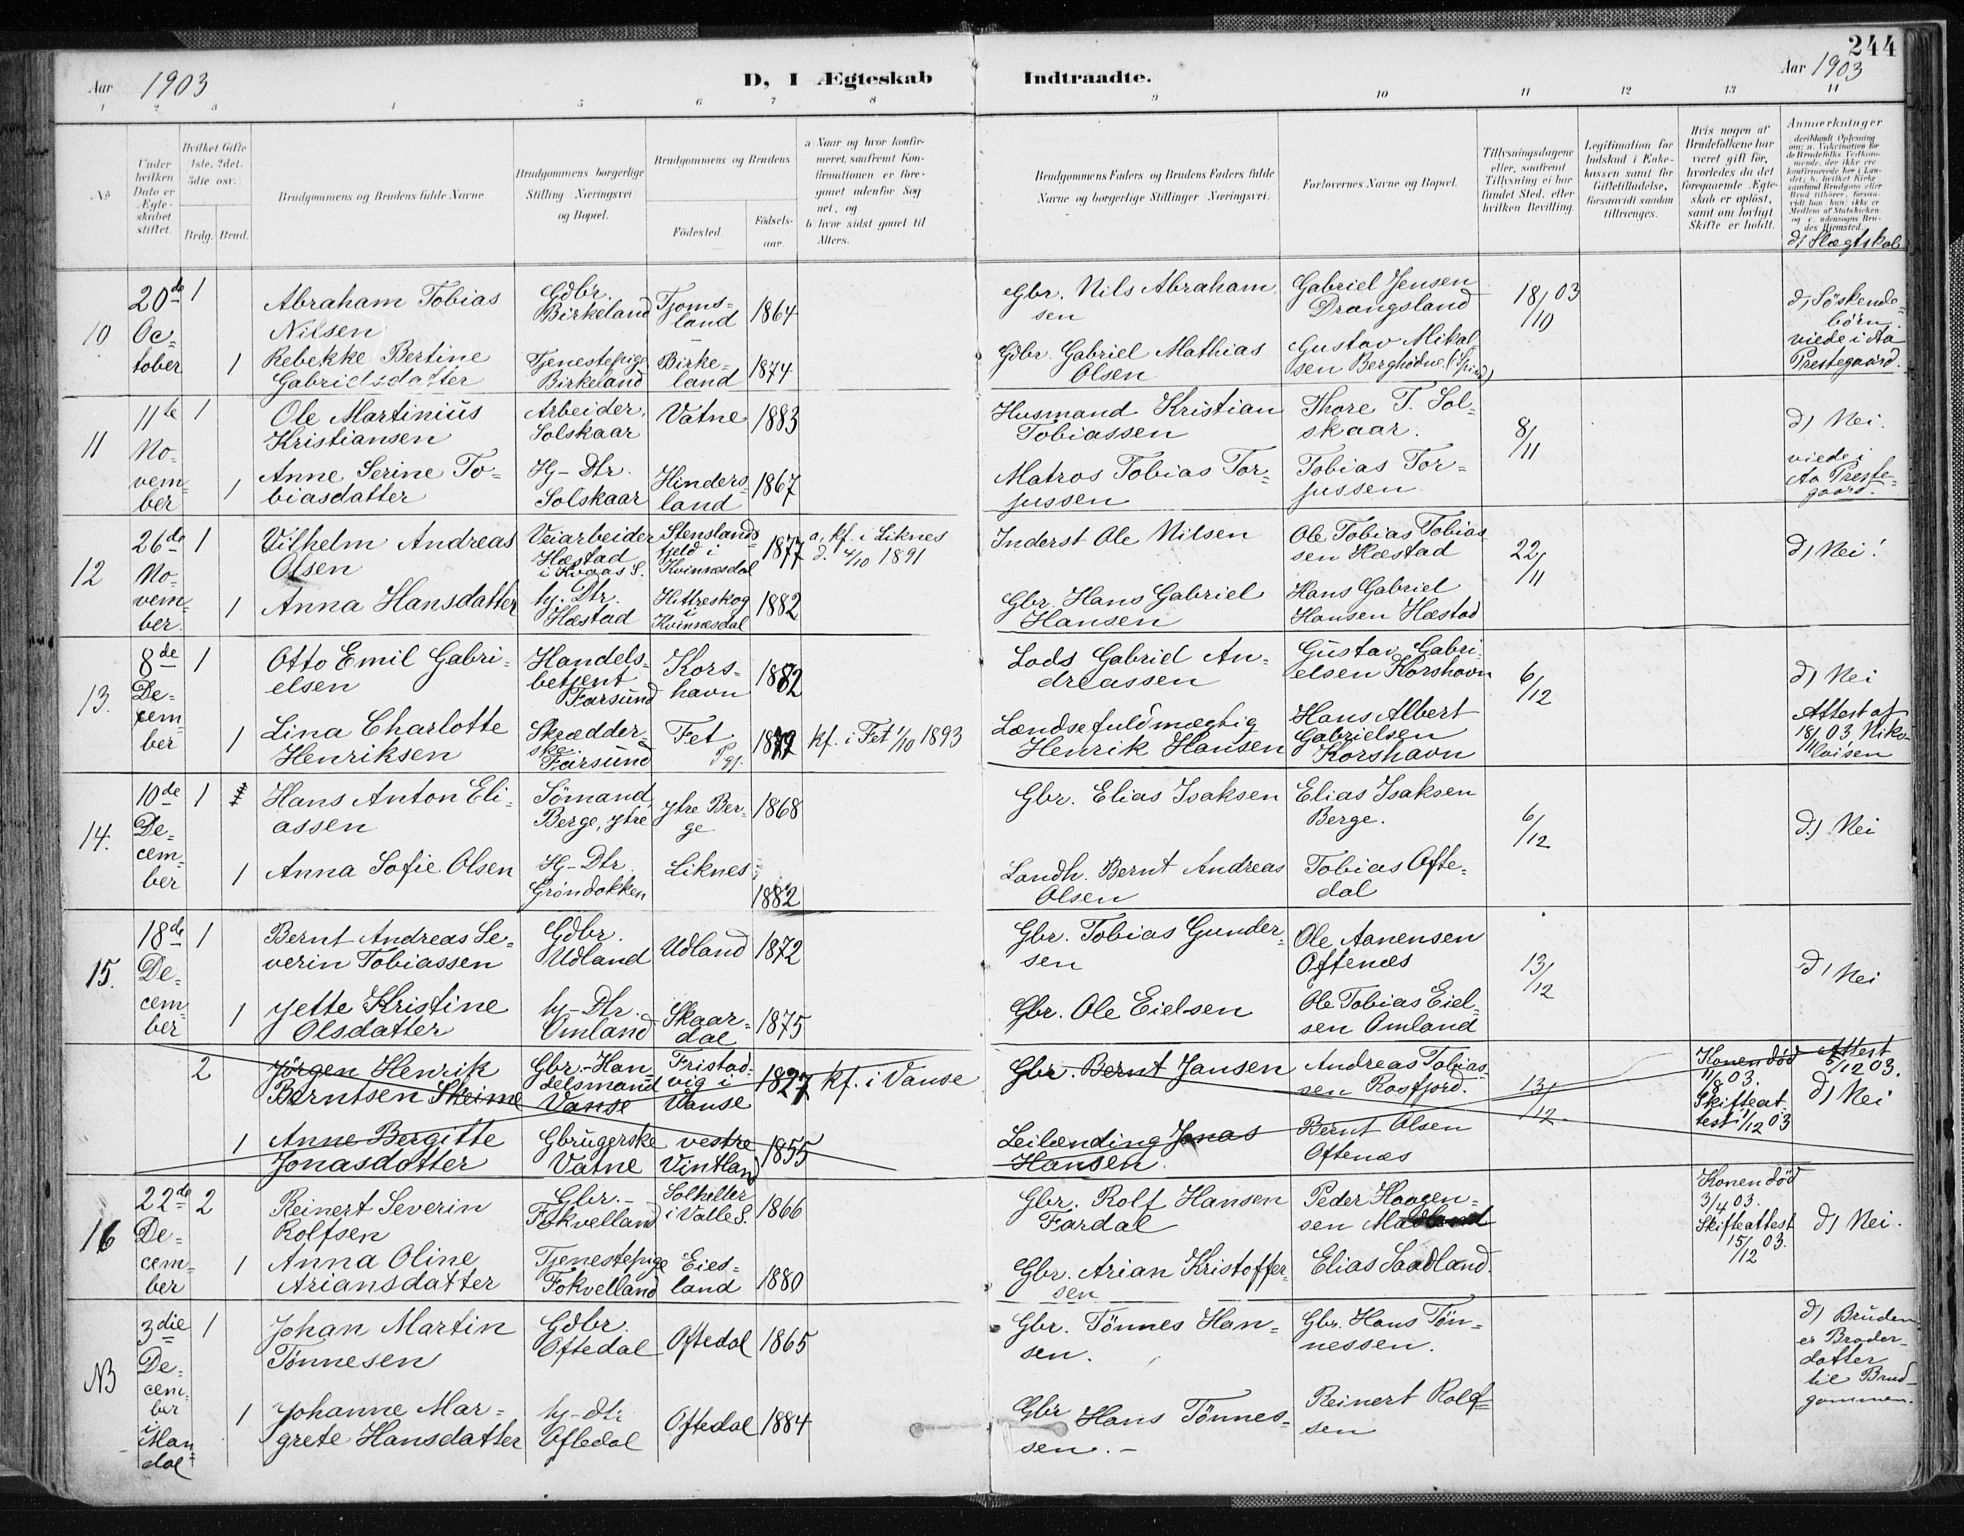 244
Aar 1903
D, I Ægteskab Indtraadte.
Aar 1903
1 2 3 4 5 6 7 8 9 10 11 12 13 14
No
Under hvilken Dato er Ægteskabet stiftet.
Hvilket Gifte 1ste, 2det, 3die osv.
Brdg. Brud.
Brudgommens og Brudens fulde Navne
Brudgommens borgerlige Stilling Næringsvei og Bopæl.
Brudgommens og Brudens
Födested.
Födsels-aar.
a Naar og hvor konfirmeret, saafremt Konfirmationen er foregaaet udenfor Sognet, og
b hvor sidst gaaet til Alters.
Brudgommens Faders og Brudens Faders fulde Navne og borgerlige Stillinger Næringsvei.
Forlovernes Navne og Bopæl.
Tillysningsdagene eller, saafremt Tillysning ei har fundet Sted, efter hvilken Bevilling.
Legitimation for Indskud i Enkekassen samt for Giftetilladelse, forsaavidt saadan tiltrænges.
Hvis nogen af Brudefolkene har været gift för, hvorledes da det foregaaende Ægteskab er oplöst, samt om lovligt Skifte er holdt.
Anmærkninger
d) Slægtskab
10
20de October
1
Abraham Tobias Nilsen
Gdbr. Birkeland
Tjomsland
1864
Gbr. Nils Abrahamsen
Gabriel Jensen Drangsland
18/10 03
d) Søskendebørn.
viede i Aa Prestegaard.
1
Rebekke Bertine Gabrielsdatter
Tjenestepige Birkeland
Birkeland
1874
Gdbr. Gabriel Mathias Olsen
Gustav Mikalsen
11
11te November
1
Ole Martinius Kristiansen
Arbeider, Solskaar
Vatne
1883
Husmand Kristian Tobiassen
Thore T. Solskaar.
8/11
d) Nei.
viede i Aa Prestegaard.
1
Anne Serine Tobiasdatter
Hj-Dtr. Solskaar
Hindersland
1867
Matros Tobias Torjussen
Tobias Torjussen
12
26de November
1
Vilhelm Andreas Olsen
Veiarbeider Hæstad i Kvaas S.
Stenslandsfjeld i Kvinnesdal
1877
a, kf. i Liknes d. 4/10 1891
Inderst Ole Nilsen
Ole Tobias Tobiassen Hæstad
22/11
d) Nei!
1
Anna Hansdatter
hj. Dtr. Hæstad
Hittreskog i Kvinnesdal
1882
Gbr. Hans Gabriel Hansen
Hans Gabriel Hansen Hæstad
13.
8de December
1
Otto Emil Gabrielsen
Handelsbetjent Farsund
Korshavn
1882
Lods Gabriel Andreassen
Gustav Gabrielsen Korshavn
6/12
d) Nei
Attest af 18/11 03,
1
Lina Charlotte Henriksen
Skrædderske. Farsund
Fet Pgj.
kf. i Fet 1/10 1893
Lændsefuldmægtig Henrik Hansen
Hans Albert Gabrielsen Korshavn
14.
10de December
1
Hans Anton Eliassen
Sømand, Berge, ytre
ytre Berge
1868
Gbr. Elias Isaksen
Elias Isaksen Berge.
6/12
d.) Nei
1
Anna Sofie Olsen
Hj-Dtr. Grøndokken
Liknes
1882
Landh. Bernt Andreas Olsen
Tobias Oftedal
15.
18de December
1
Bernt Andreas Severin Tobiassen
Gdbr. Udland
Udland
1872
Gbr. Tobias Gundersen
Ole Aanensen Oftenæs
13/12
d) Nei
1
Jette Kristine Olsdatter
hj-Dtr. Omland
Skaardal
1875
Gbr. Ole Eielsen
Ole Tobias Eielsen Omland
2
Jørgen Henrik Berntsen Skeime
Gbr.-Handelsmand Vanse
Fristadvig i Vanse
1827
kf. i Vanse
Gbr. Bernt Jansen
Andreas Tobiassen Rosfjord.
13/12
Konen død 11/8 03.
Skifteattest 1/12 03
Attest 5/12 03.
d) Nei
1
Anne Bergitte Jonasdatter
Gbrugerske Vatne
vestre Vintland
1855
Leilænding Jonas Hansen.
Bernt Olsen Oftenæs
16
22de December
2
Reinert Severin Rolfsen
Gbr. - Fokvelland
Solheller i Valle S.
1866
Gbr. Rolf Hansen Fardal
Peder Haagensen
Konen død 3/4 03.
Skifteattest 15/12 03.
d) Nei.
1
Anna Oline Ariansdatter
Tjenestepige Fokvelland
Eiesland
1880
Gbr. Arian Kristoffersen
Elias Saadland.
NB
3die December i Mandal
1
Johan Martin Tønnesen
Gdbr. Oftedal
Oftedal
1865
Gbr. Tönnes Hansen.
Gbr. Hans Tönnessen.
d) Bruden er Broderdatter til Brudgommen.
1
Johanne Margrete Hansdatter
hj-dtr Oftedal
Oftedal
1884
Gbr Hans Tönnessen. -
Reinert Rolfsen